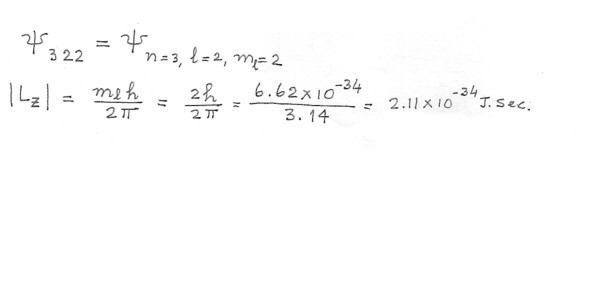 ψ₃₂₂ = ψ n=3, l=2, mₗ=2
|L_z| = mₗh/2π = 2h/2π = 6.62×10⁻³⁴/3.14 = 2.11×10⁻³⁴ J.Sec.